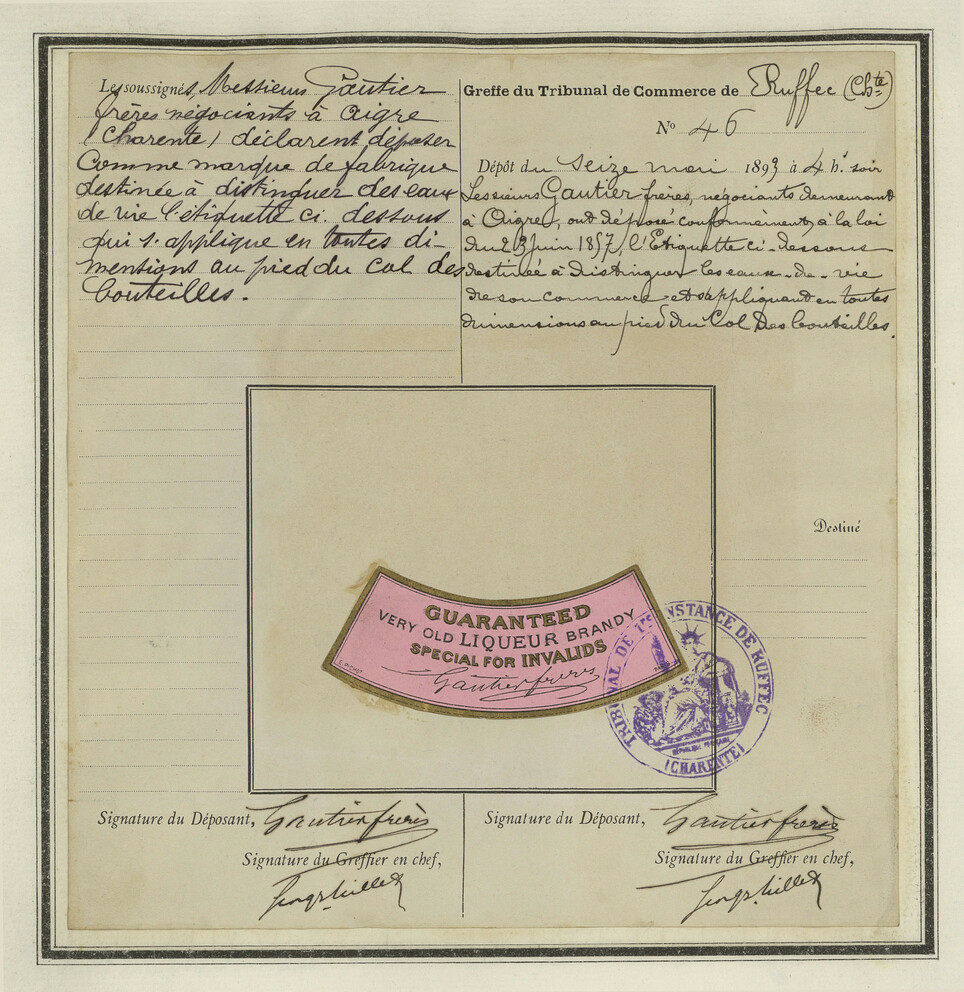 Les soussignés, Messieurs Gautier
frères négociants à Aigre
(Charente) déclarent déposer
comme marque de fabrique
destinée à distinguer des eaux
de vie l'étiquette ci-dessous
qui s'applique en toutes di-
mentions au pied du col des
bouteilles.
Greffe du Tribunal de Commerce de Ruffec (Chte)
No 46
Dépôt du seize mai 1893 à 4 h. soir
Les sieurs Gautier frères, négociants demeurant
à Aigre, ont déposé conformément, à la loi
du 23 juin 1857, l'Etiquette ci-dessous
destinée à distinguer les eaux-de-vie
de son commerce et s'appliquant en toutes
dimensions au pied du Col des bouteilles.
Destiné
GUARANTEED
VERY OLD LIQUEUR BRANDY
SPECIAL FOR INVALIDS
Gautier frères
TRIBUNAL DE 1re INSTANCE DE RUFFEC
(CHARENTE)
Signature du Déposant, Gautier frères
Signature du Greffier en chef,
Signature du Déposant, Gautier frères
Signature du Greffier en chef,